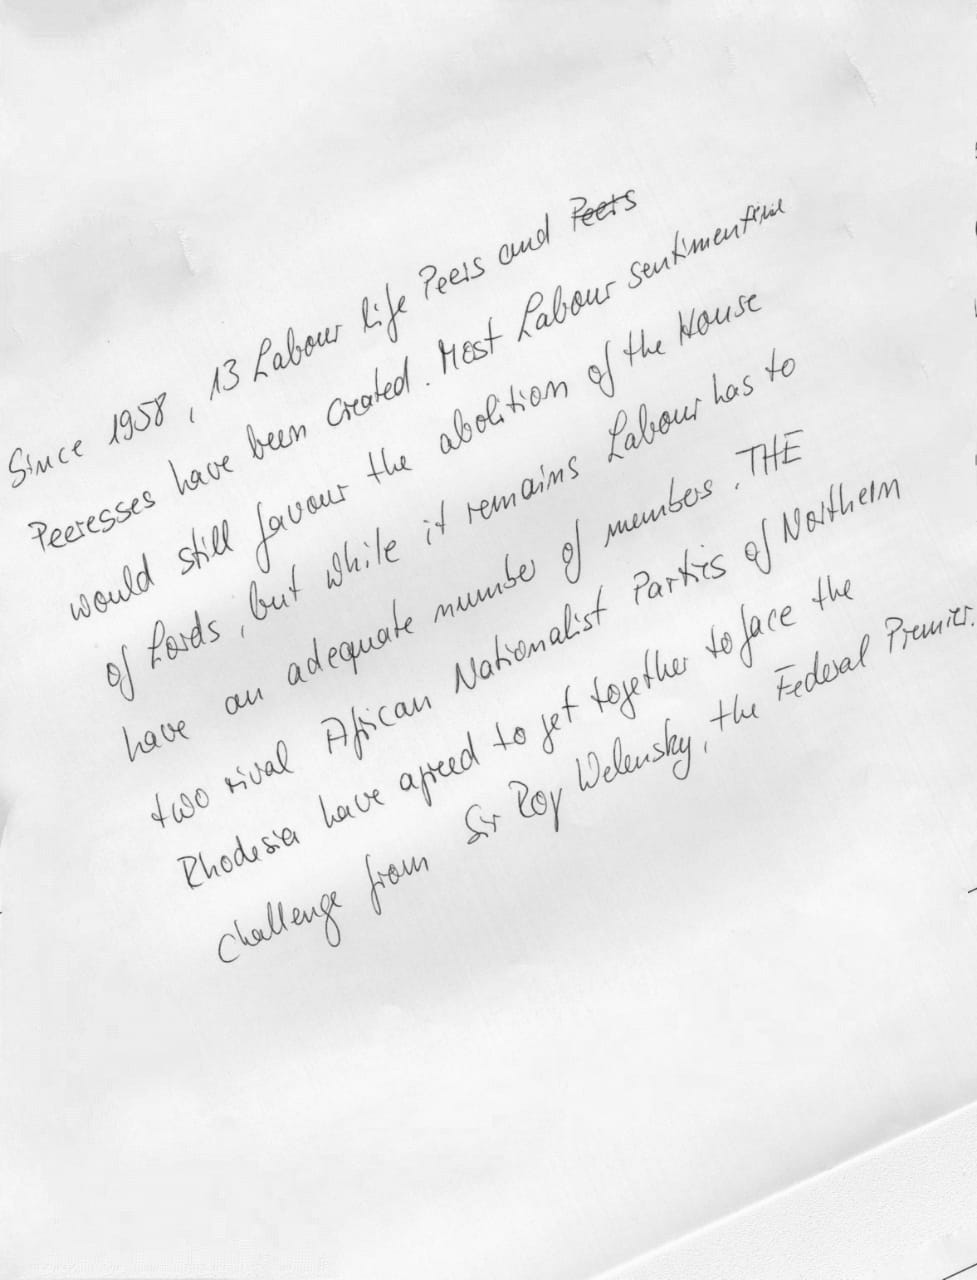 Since 1958, 13 Labour life Peers and Peers
Peeresses have been created. Most Labour
would still favour the abolition of the House
of Lords, but while it remains Labour has to
have an adequate number of members. THE
two rival African Nationalist Parties of Northern
Rhodesia have agreed to get together to face the
challenge from Sir Roy Welensky, the Federal Premier.